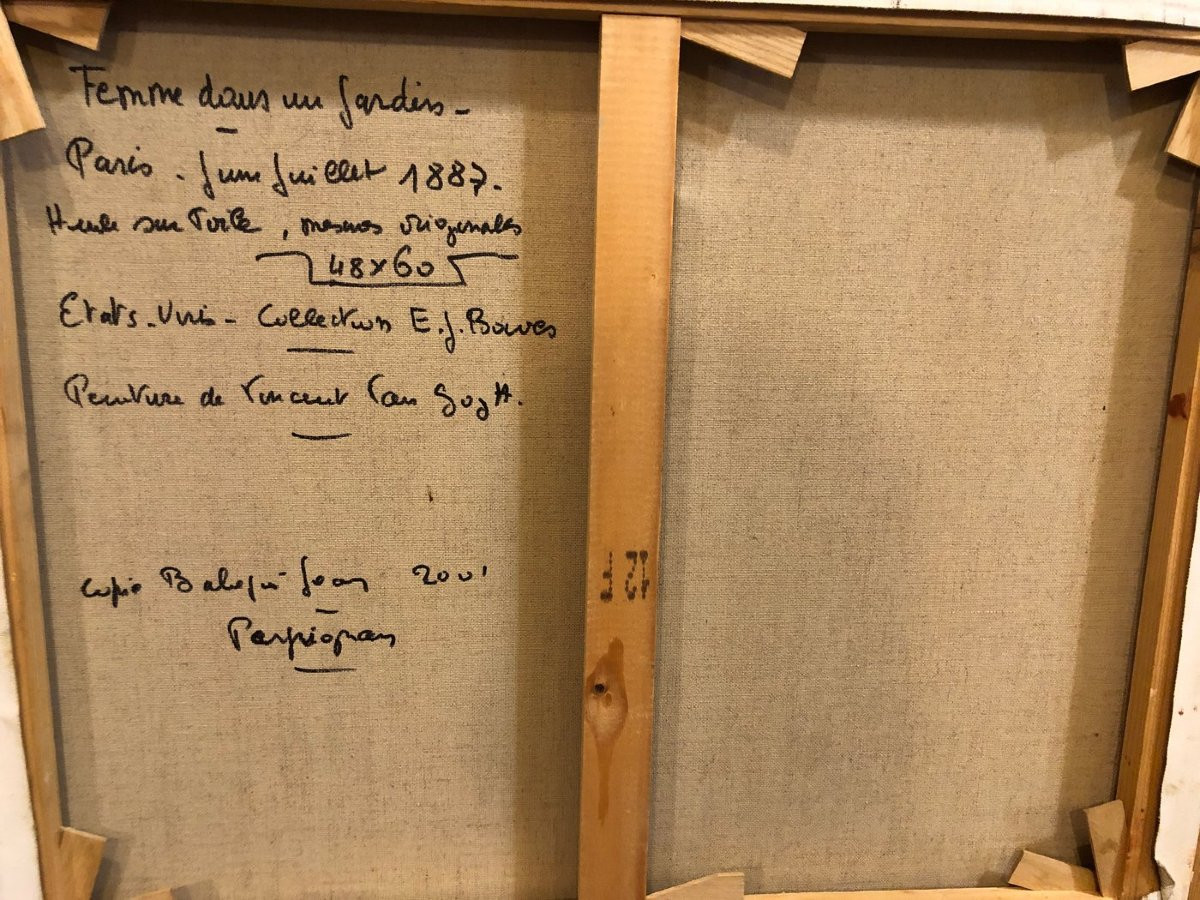 Femme dans un Jardin -
Paris - Juin Juillet 1887.
Huile sur Toile, mesures originales
48x60
Etats-Unis - Collection E.J. Bowes
Peinture de Vincent Van GogH.
copie Jean 2001
Perpignan
12 F